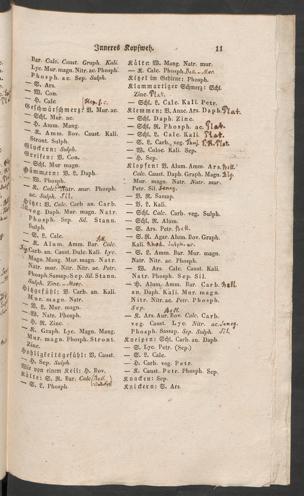 Inneres Kopfweh. 11
Bar. Calc. Caust. Graph. Kali.
Lyc. Mur. magn. Nitr. ac. Phosph.
Phosph. ac. Sep. Sulph.
— S. Ars.
— W. Con.
— H. Calc.
Geschwürschmerz: V. Mur. ac.
— Schl. Mur. ac.
— H. Amm. Mang.
— K. Amm. Bov. Caust. Kali.
Stront. Sulph.
Gluckern: Sulph.
Greifen: W. Con.
— Schl. Mur. magn.
Hämmern: V. L. Daph.
— W. Phosph.
— K. Calc. Natr. mur. Phosph.
ac. Sulph.
Hitze: V. Calc. Carb. an. Carb.
veg. Daph. Mur. magn. Natr.
Phosph. Sep. Sil. Stann.
Sulph.
— S. L. Calc.
— K. Alum. Amm. Bar. Calc.
Carb. an. Caust. Dulc. Kali. Lyc.
Magn. Mang. Mur. magn. Natr.
Natr. mur. Nitr. Nitr. ac. Petr.
Phosph. Sassap. Sep. Sil. Stann.
Sulph. Zinc.
Hitzgefühl: V. Carb. an. Kali.
Mur. magn. Natr.
— S. L. Mur. magn.
— W. Natr. Phosph.
— H. R. Zinc.
— K. Graph. Lyc. Magn. Mang.
Mur. magn. Phosph. Stront.
Zinc.
Hohligkeitsgefühl: V. Caust.
— H. Sep. Sulph.
Wie von einem Keil: H. Bov.
Kälte: S. R. Bar. Calc.
— S. L. Phosph.
Kälte: W. Mang. Natr. mur.
— K. Calc. Phosph.
Kugel im Gehirne: Phosph.
Klammartiger Schmerz: Schl.
Zinc. Plat.
— Schl. L. Calc. Kali. Petr.
Klemmen: V. Anac. Ars. Daph. Plat.
— Schl. Daph. Zinc.
— Schl. R. Phosph. ac. Plat.
— Schl. L. Calc. Kali. Plat.
— S. L. Carb. veg.
— W. Calc. Kali. Sep.
— H. Sep.
Klopfen: V. Alum. Amm. Ars.
Calc. Caust. Daph. Graph. Magn.
Mur. magn. Natr. Natr. mur.
Petr. Sil.
— V. R. Sassap.
— V. L. Kali.
— Schl. Calc. Carb. veg. Sulph.
— Schl. R. Alum.
— S. Ars. Petr.
— S. R. Agar. Alum. Bov. Graph.
Kali.
— S. L. Amm. Bar. Mur. magn.
Natr. Nitr. ac. Phosph.
— W. Ars. Calc. Caust. Kali.
Natr. Phosph. Sep. Sil.
— H. Alum. Amm. Bar. Carb.
an. Daph. Kali. Mur. magn.
Nitr. Nitr. ac. Petr. Phosph.
Sep.
— K. Ars. Aur. Bov. Calc. Carb.
veg. Caust. Lyc. Nitr. ac.
Phosph. Sassap. Sep. Sulph. Sil.
Kneipen: Schl. Carb. an. Daph.
— S. Lyc. Petr. (Sep.)
— S. L. Calc.
— H. Carb. veg. Petr.
— K. Caust. Petr. Phosph. Sep.
Knacken: Sep.
Knickern: S. Ars.